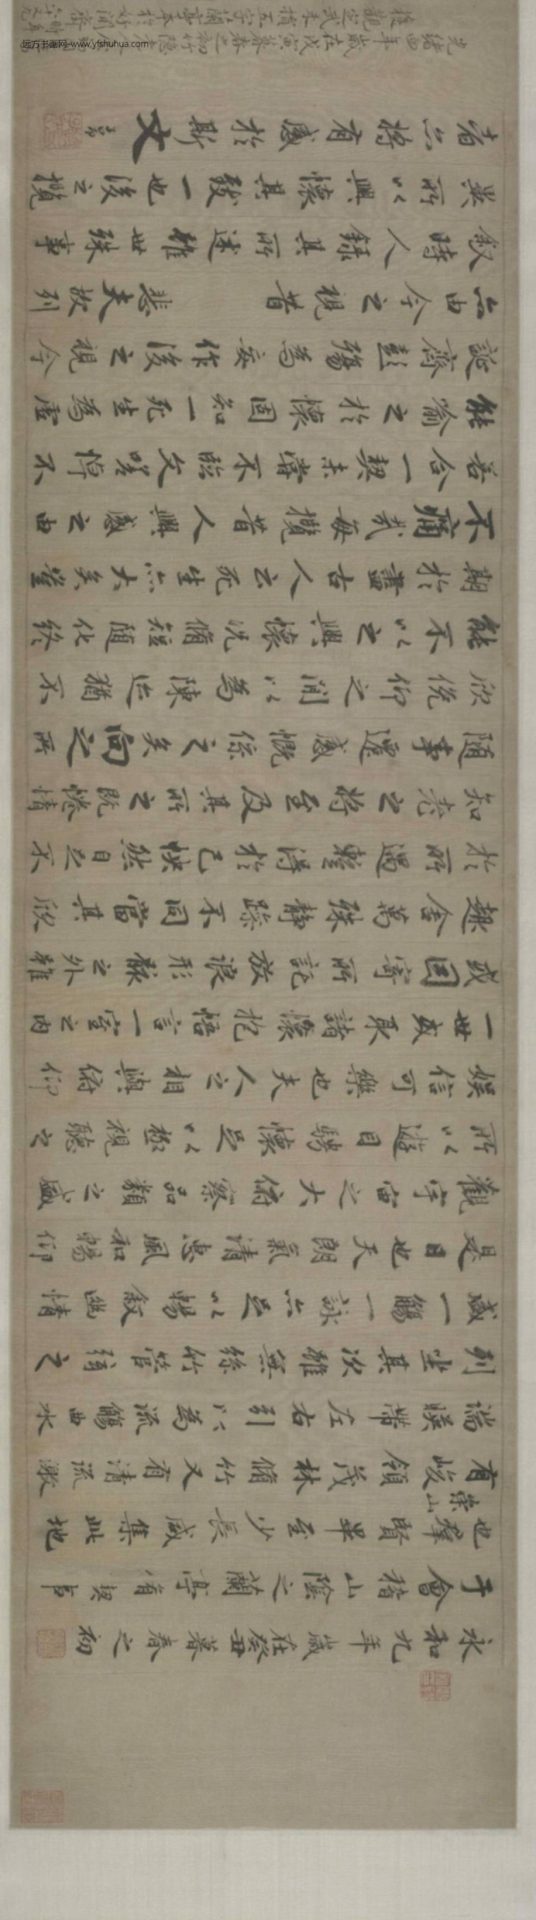 永和九年歲在癸丑暮春之初
于會稽山陰之蘭亭脩稧事
也群賢畢至少長咸集此地
有崇山峻領茂林脩竹又有清流激
湍暎帶左右引以為流觴曲水
列坐其次雖無絲竹管弦之
盛一觴一詠亦足以暢敘幽情
是日也天朗氣清惠風和暢仰
觀宇宙之大俯察品類之盛
所以遊目騁懷足以極視聽之
娛信可樂也夫人之相與俯仰
一世或取諸懷抱悟言一室之內
或因寄所託放浪形骸之外雖
趣舍萬殊靜躁不同當其欣
於所遇蹔得於己怏然自足不
知老之將至及其所之既惓情
隨事遷感慨係之矣向之所
欣俛仰之閒以為陳迹猶不
能不以之興懷況脩短隨化終
期於盡古人云死生亦大矣豈
不痛哉每攬昔人興感之由
若合一契未嘗不臨文嗟悼不
能喻之於懷固知一死生為虛
誕齊彭殤為妄作後之視今
亦由今之視昔 悲夫故列
敘時人錄其所述雖世殊事
異所以興懷其致一也後之攬
者亦將有感於斯文
光緒四年歲在戊寅暮春之初竹隱
定武未損五字蘭亭本於竹澗齋時年
远方书画网-www.yfshuhua.com